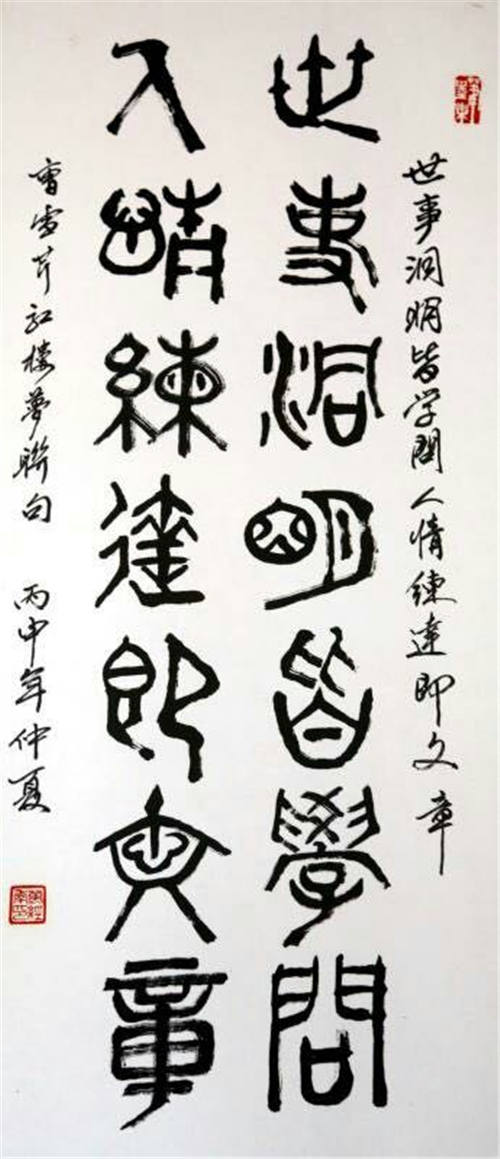 世事洞明皆学问人情练达即文章
世事洞明皆學問
人情練達即文章
曹雪芹红楼梦联句 丙申年仲夏